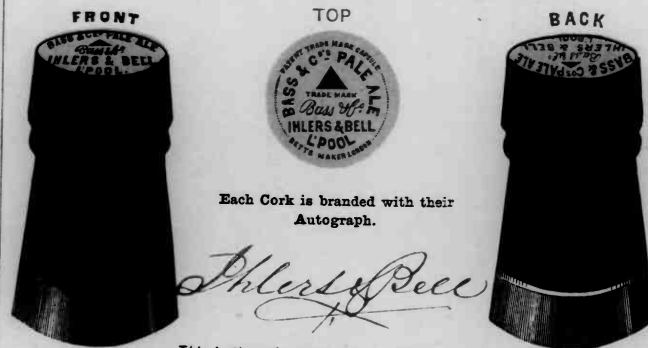 FRONT
TOP
BACK
BASS & CO'S PALE ALE
Bass & Co
IHLERS & BELL
L'POOL.
PATENT TRADE MARK CAPSULE
BASS & CO'S PALE ALE
TRADE MARK
Bass & Co
IHLERS & BELL
L'POOL
BETTS MAKER LONDON
BASS & CO'S PALE ALE
Bass & Co
IHLERS & BELL
L'POOL
Each Cork is branded with their
Autograph.
Ihlers & Bell